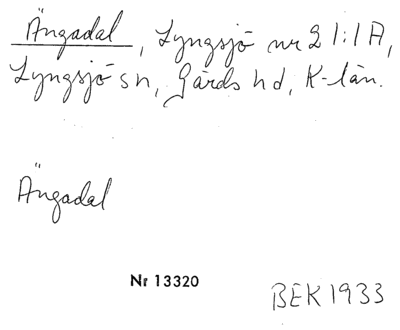 Ängadal, Lyngsjö nr 2 1:1 A,
Lyngsjö sn, Gärds hd, K-län.
Ängadal
Nr 13320
BEK 1933